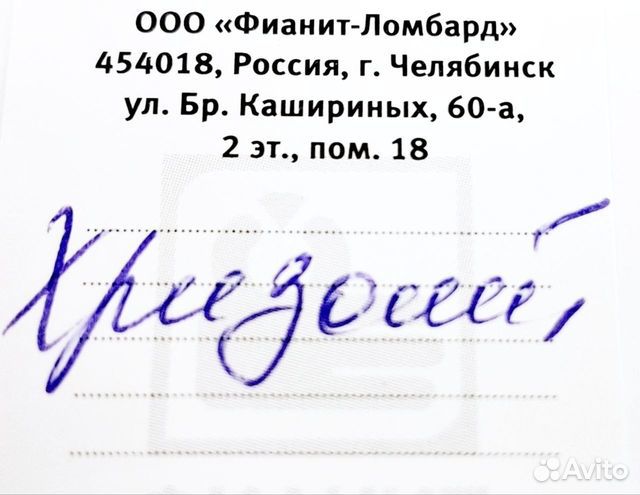 ООО «Фианит-Ломбард»
454018, Россия, г. Челябинск
ул. Бр. Кашириных, 60-а,
2 эт., пом. 18
Хризолит,
Avito